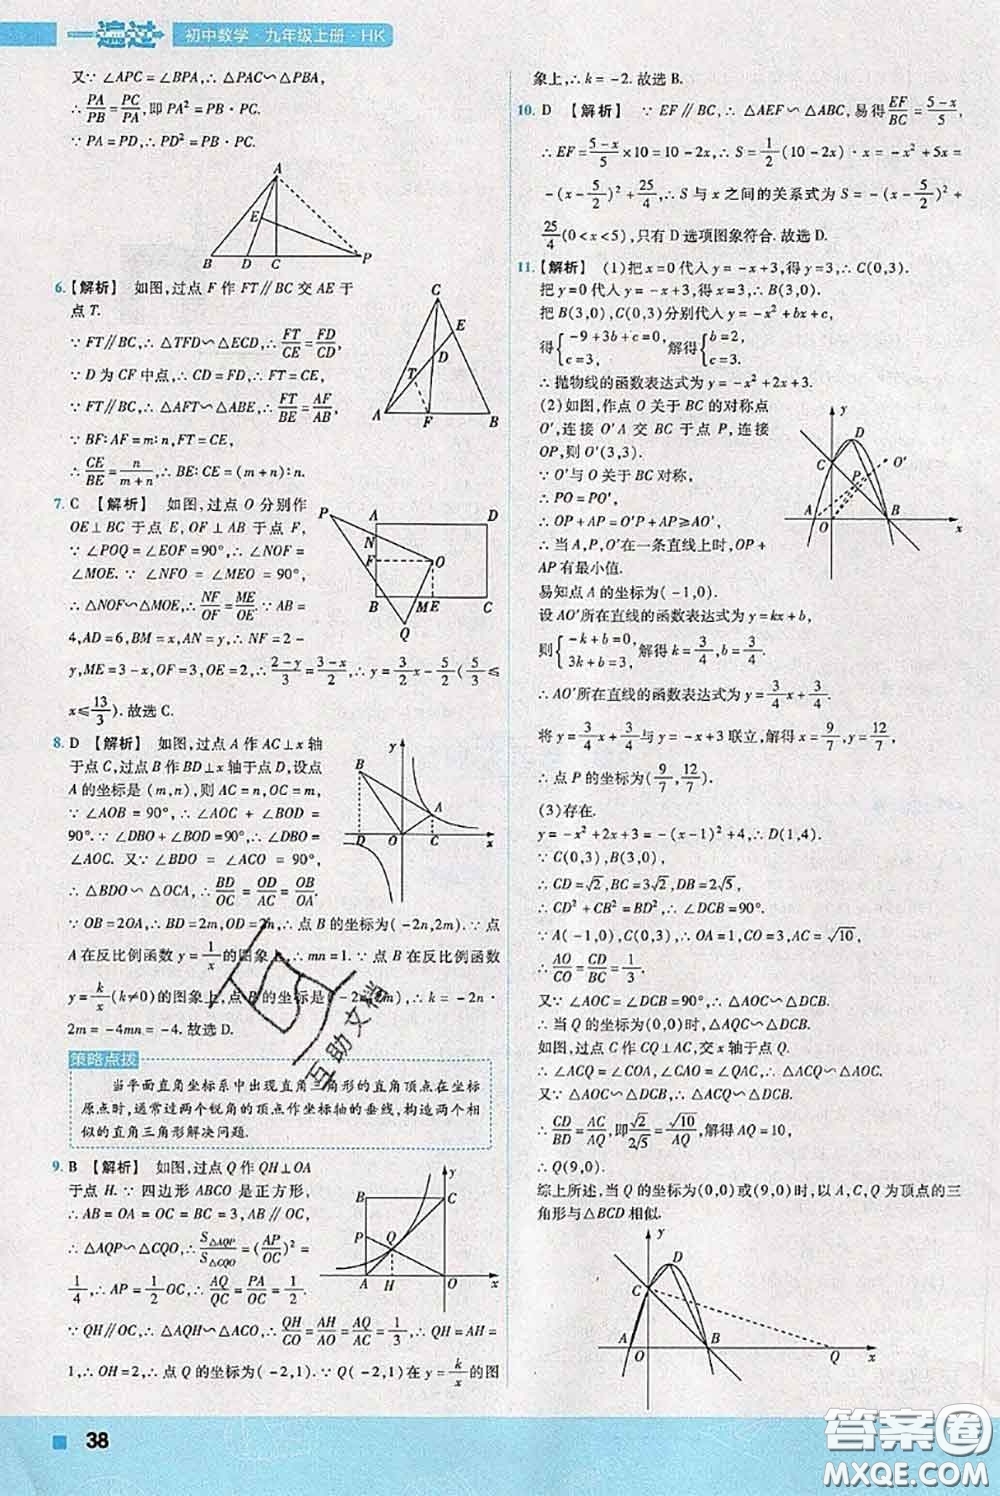 一遍过 初中数学·九年级上册·HK
又∵ ∠APC = ∠BPA,∴ △PAC∽△PBA,
∴ PA/PB = PC/PA,即 PA² = PB·PC.
∵ PA = PD,∴ PD² = PB·PC.
A
E
B D C P
6.【解析】 如图,过点 F 作 FT∥BC 交 AE 于
点 T.
∵ FT∥BC,∴ △TFD∽△ECD,∴ FT/CE = FD/CD.
∵ D 为 CF 中点,∴ CD = FD,∴ FT = CE.
∵ FT∥BC,∴ △AFT∽△ABE,∴ FT/BE = AF/AB.
∵ BF∶AF = m∶n,FT = CE,
∴ CE/BE = n/(m+n),∴ BE∶CE = (m+n)∶n.
C
E
D
T
A F B
7. C 【解析】 如图,过点 O 分别作
OE⊥BC 于点 E,OF⊥AB 于点 F,
∵ ∠POQ = ∠EOF = 90°,∴ ∠NOF =
∠MOE. ∵ ∠NFO = ∠MEO = 90°,
∴ △NOF∽△MOE,∴ NF/OF = ME/OE. ∵ AB =
4,AD = 6,BM = x,AN = y,∴ NF = 2 -
y,ME = 3 - x,OF = 3,OE = 2,∴ (2-y)/3 = (3-x)/2,∴ y = 3/2 x - 5/2 (5/3 ≤
x ≤ 13/3). 故选 C.
P A D
N
F O
B M E C
Q
8. D 【解析】 如图,过点 A 作 AC⊥x 轴
于点 C,过点 B 作 BD⊥x 轴于点 D,设点
A 的坐标是 (m,n),则 AC = n,OC = m.
∵ ∠AOB = 90°,∴ ∠AOC + ∠BOD =
90°. ∵ ∠DBO + ∠BOD = 90°,∴ ∠DBO =
∠AOC. 又∵ ∠BDO = ∠ACO = 90°,
∴ △BDO∽△OCA,∴ BD/OC = OD/AC = OB/OA.
∵ OB = 2OA,∴ BD = 2m,OD = 2n,∴ 点 B 的坐标为 (-2n,2m). ∵ 点
A 在反比例函数 y = 1/x 的图象上,∴ mn = 1. ∵ 点 B 在反比例函数
y = k/x (k≠0) 的图象上,点 B 的坐标是 (-2n,2m),∴ k = -2n·
2m = -4mn = -4. 故选 D.
y
B
A
D O C x
策略点拨
当平面直角坐标系中出现直角三角形的直角顶点在坐标
原点时,通常过两个锐角的顶点作坐标轴的垂线,构造两个相
似的直角三角形解决问题.
9. B 【解析】 如图,过点 Q 作 QH⊥OA
于点 H. ∵ 四边形 ABCO 是正方形,
∴ AB = OA = OC = BC = 3,AB∥OC,
∴ △AQP∽△CQO,∴ S△AQP/S△CQO = (AP/OC)² =
1/4,∴ AP = 1/2 OC,∴ AQ/QC = PA/OC = 1/2.
∵ QH∥OC,∴ △AQH∽△ACO,∴ QH/CO = AH/AO = AQ/AC = 1/3,∴ QH = AH =
1,∴ OH = 2,∴ 点 Q 的坐标为 (-2,1). ∵ Q(-2,1) 在 y = k/x 的图
y
B C
P
Q
A H O x
象上,∴ k = -2. 故选 B.
10. D 【解析】 ∵ EF∥BC,∴ △AEF∽△ABC,易得 EF/BC = (5-x)/5,
∴ EF = (5-x)/5 × 10 = 10 - 2x,∴ S = 1/2 (10 - 2x)·x = -x² + 5x =
-(x - 5/2)² + 25/4,∴ S 与 x 之间的关系式为 S = -(x - 5/2)² +
25/4 (0 < x < 5),只有 D 选项图象符合. 故选 D.
11.【解析】 (1)把 x = 0 代入 y = -x + 3,得 y = 3,∴ C(0,3).
把 y = 0 代入 y = -x + 3,得 x = 3,∴ B(3,0).
把 B(3,0),C(0,3)分别代入 y = -x² + bx + c,
得{-9 + 3b + c = 0, c = 3, 解得{b = 2, c = 3.
∴ 抛物线的函数表达式为 y = -x² + 2x + 3.
(2)如图,作点 O 关于 BC 的对称点
O′,连接 O′A 交 BC 于点 P,连接
OP,则 O′(3,3).
∵ O′与 O 关于 BC 对称,
∴ PO = PO′,
∴ OP + AP = O′P + AP ≥ AO′,
∴ 当 A,P,O′在一条直线上时,OP +
AP 有最小值.
易知点 A 的坐标为 (-1,0).
设 AO′所在直线的函数表达式为 y = kx + b,
则{-k + b = 0, 3k + b = 3, 解得 k = 3/4,b = 3/4,
∴ AO′所在直线的函数表达式为 y = 3/4 x + 3/4.
将 y = 3/4 x + 3/4 与 y = -x + 3 联立,解得 x = 9/7,y = 12/7,
∴ 点 P 的坐标为 (9/7,12/7).
y
D
C O′
P
A O B x
(3)存在.
y = -x² + 2x + 3 = -(x - 1)² + 4,∴ D(1,4).
∵ C(0,3),B(3,0),
∴ CD = √2,BC = 3√2,DB = 2√5,
∴ CD² + CB² = BD²,∴ ∠DCB = 90°.
∵ A(-1,0),C(0,3),∴ OA = 1,CO = 3,AC = √10,
∴ AO/CO = CD/BC = 1/3.
又∵ ∠AOC = ∠DCB = 90°,∴ △AOC∽△DCB,
∴ 当 Q 的坐标为 (0,0)时,△AQC∽△DCB.
如图,过点 C 作 CQ⊥AC,交 x 轴于点 Q.
∴ ∠ACQ = ∠COA,∠CAO = ∠CAQ,
又∵ △AOC∽△DCB,∴ △ACQ∽△DCB,
∴ CD/BD = AC/AQ,即 √2/2√5 = √10/AQ,解得 AQ = 10,
∴ Q(9,0).
综上所述,当 Q 的坐标为(0,0)或(9,0)时,以 A,C,Q 为顶点的三
角形与△BCD 相似.
y
D
C
A O B Q x
互助文档
38
答案圈
MXQE.COM